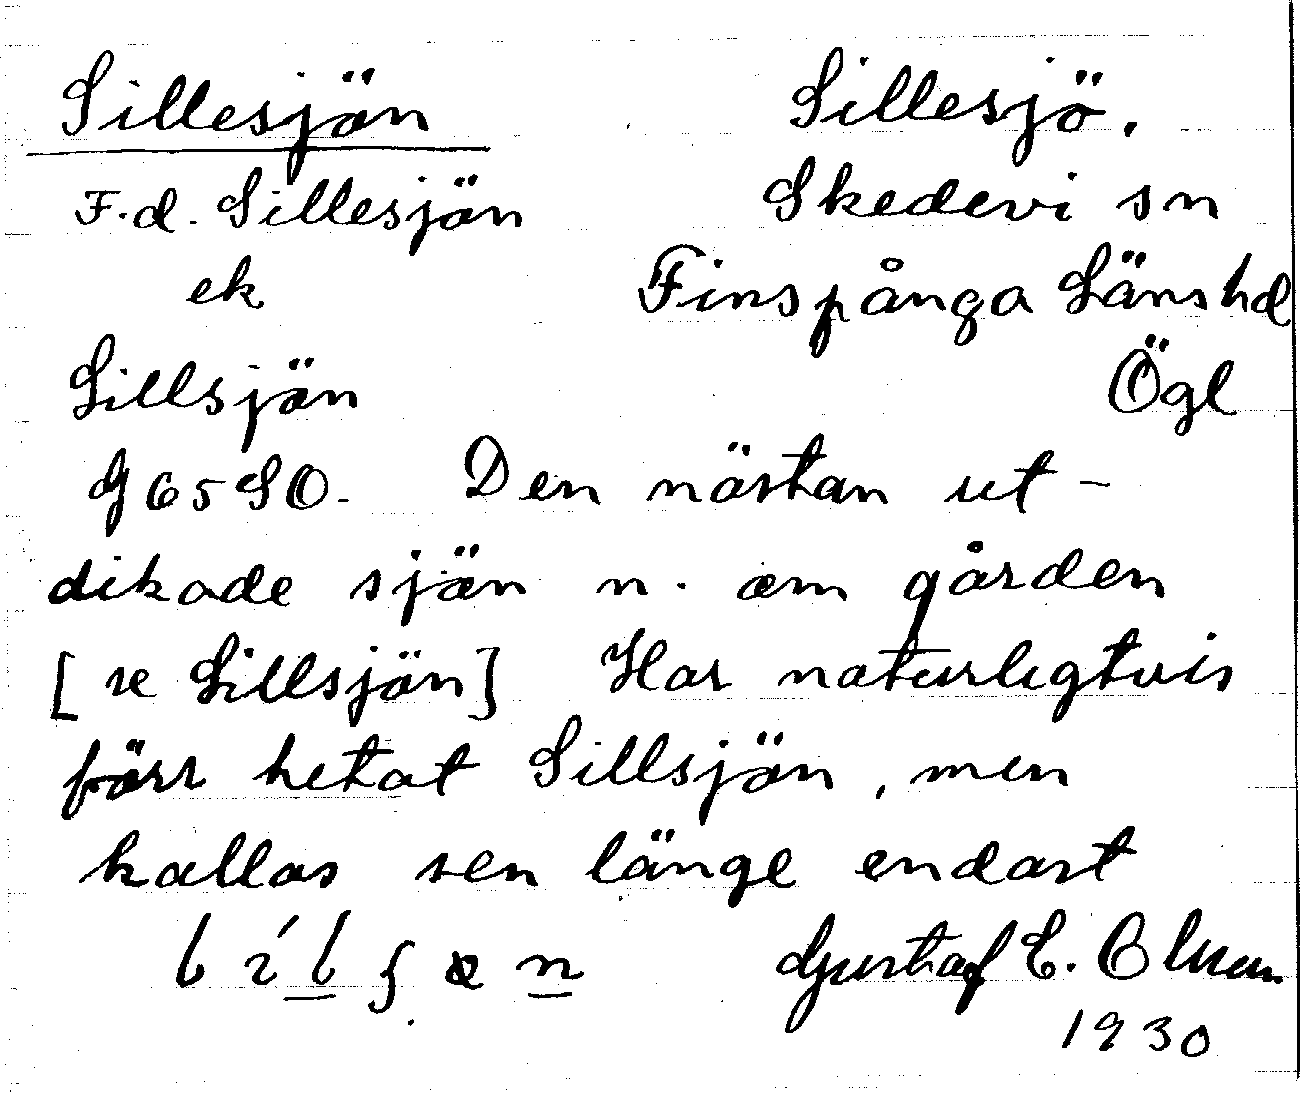 Lillesjön Lillesjö.
F.d. Lillesjön Skedevi sn
ek Finspånga Länshd
Lillsjön Ögl
G 65 SO. Den nästan ut-
dikade sjön n. om gården
[se Lillsjön] Har naturligtvis
förr hetat Lillsjön, men
kallas sen länge endast
lílʃøn Gustaf E. Olsson
1930